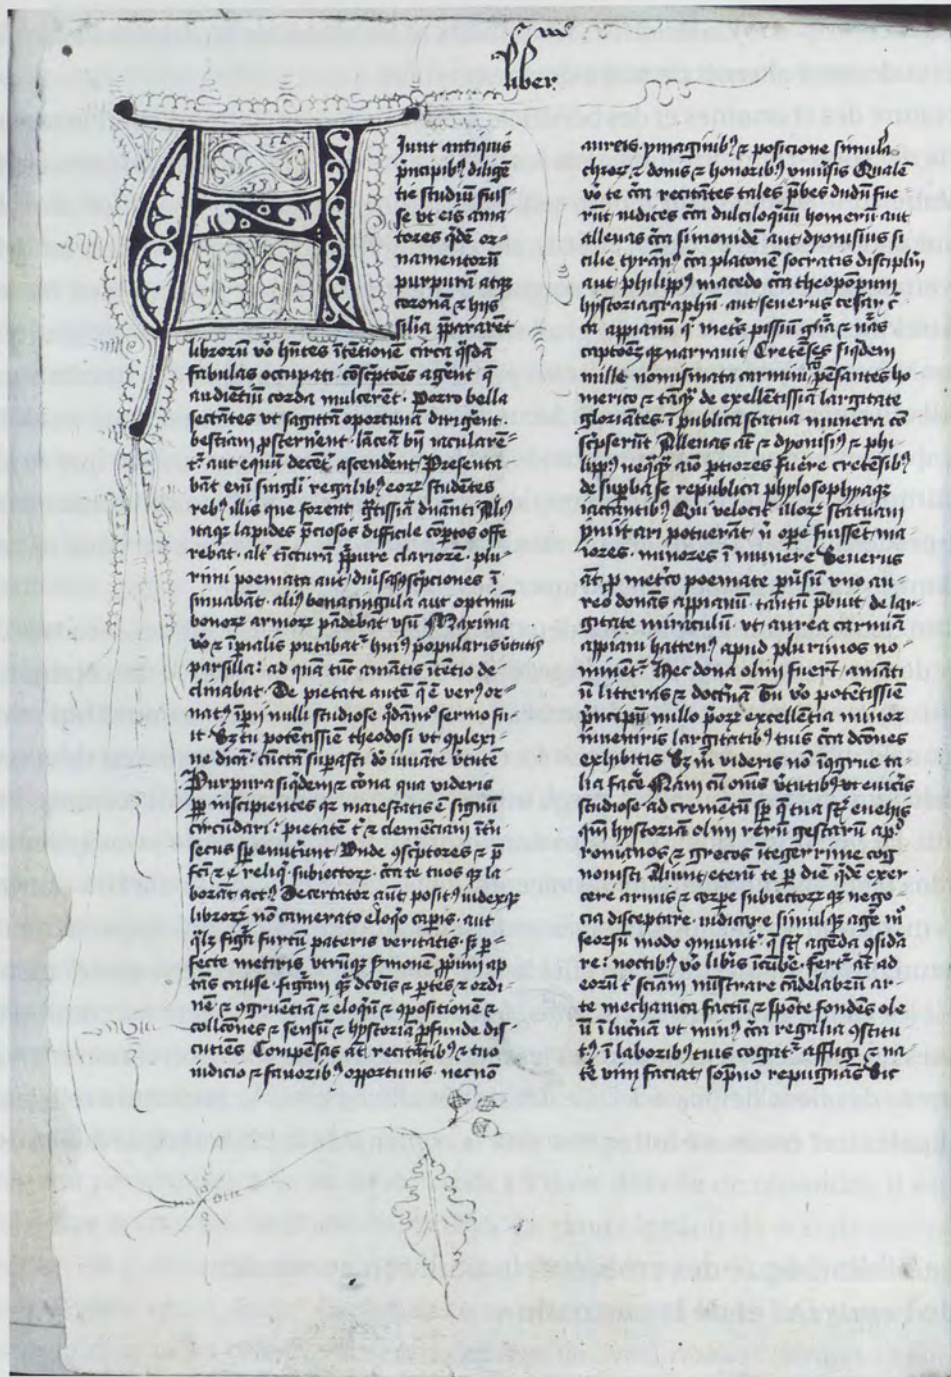 liber
Aiunt antiquis
p̄ncipibꝰ diligen̄
tie studiū fuis-
se vt eis ama-
tores q̄dē or-
namentorū
purpurā atqꝫ
coronā ⁊ hijs
silīa p̄pararēt
librorū vo h̄ntes ītētionē circa q̄sdā
fabulas occupati cōsc̄ptōes agēnt q̄
audiētiū corda mulcerēt. Porro bella
sectātes vt sagittā oportunā dirigēnt.
bestiam ꝓsternēnt. lāceā bn̄ iacularē-
tᷣ aut equū decētᷣ ascendēnt Presenta
bāt em̄ singlī regalibꝫ eoꝝ studētes
rebꝫ illis que forent gͣtissiā
itaqꝫ lapides p̄ciosos difficile cōptos offe
rebat. altᷣ tīcturā p̄pure clarioreꝫ. plu-
rimi poemata aut
sinuabāt. aliꝰ bona cingula aut optimū
bonoꝝ armoꝝ pādebat vsū Maxima
vo ⁊ īpialis putabatᷣ huiꝰ popularis v̄tutis
parsilla: ad quā tūc amātis ītētio de-
clinabat. De pietate autē q̄ ē verꝰ or-
natꝰ īpij nulli studiose q̄dāmͦ sermo fu-
it Sꝫ tu potētissiē theodosi vt ꝯplexi-
ne dicā: cūctā suꝑasti do iuuāte v̄tutē
Purpura siq̄dem ⁊ corōa qua videris
ꝑꝑ inscipientes qꝫ maiestatis ē signū
circūdari: pietatē tᷣ ⁊ clemēciam ītᷣ
secus sꝑ enutriunt Vnde ꝯsc̄ptores ⁊ p̄
fc̄i ⁊ reliqͥ subiectoꝝ. cͣa te tuos qꝫ la
borāt actꝰ Decertator aut̄ positꝰ iudexqꝫ
libroꝝ nō camerato eloqͦ capis. aut
qͣlꝫ figͣa furtū pateris veritatis. sꝫ ꝑ-
fecte metiris vtrūqꝫ s̄monē pp̄iū ap
tās cause. figͣam qꝫ dcōis ⁊ ꝑtes ⁊ ordi-
nē ⁊ ꝯgruēcia ⁊ eloqͥū ⁊ ꝯpositionē ⁊
collcōnes ⁊ sensū ⁊ hystoriā ꝓfunde dis-
cutiēs Compēsas at̄ recitātibꝰ ⁊ tuo
iudicio ⁊ fauoribꝰ opportunis necnō
aureis ymaginibꝰ ⁊ posicione simula
chroꝝ ⁊ donis ⁊ honoribꝰ vniūsis Qualē
vo te cͣa recitātes tales p̄bes dudū fue
rūt iudices cͣa dulciloquū homerū aut
alleuas cͣa simonidē aut dyonisius si
cilie tyrānꝰ cͣa platonē socratis discipulū
aut philippꝰ macedo cͣa theopōpum
hystoriagraphū aut seuerus cesar cͣ
ca appianū qͥ metͥs pissiū gn̄a ⁊ nͣas
captōeꝫ qꝫ narrauit Cretēses siq̄dem
mille nomismata carminū pēsantes ho
merico ⁊ tāqͣꝫ de exellētissīa largitate
gloriātes ī publica statua munera cō
sc̄pserūt Alleuas at̄ ⁊ dyonisiꝰ ⁊ phi-
lippꝰ neq̄qͣꝫ
de suꝑba se republica phylosophyaqꝫ
iactātibꝰ Qui velocitᷣ illoꝝ statuam
ymitari potuerāt si opē fuissēt ma
iores. minores ī munere Seuerus
at̄ ꝓ metͥco poemate ꝑ v̄sū vno au-
reo donās appianū. tātū p̄buit de lar-
gitate miraculū. vt aurea carmīa
appiani hattenꝰ apud plurimos no-
minētᷣ. Hec dona olim fuerūt amāti
ū litteras ⁊ doctͥnā Tu vo potētissiē
pͥncipū nullo pͥoꝝ excellētia minor
inueniris largitatibꝰ tuis cͣa dcōnes
exhibitis Sꝫ m̄ videris nō īꝯgrue ta-
lia facē Nam cū om̄is v̄tutibꝰ vt euicīs
studiose ad crementū sꝑ q̄ tua sūt enehis
qm̄ hystoriā olim rerū gestarū ap.ͩ
romanos ⁊ grecos ītegerrime cog
nouisti Aiunt eterū te ꝑ diē q̄dē exer
cere armis ⁊ corꝑe subiectoꝝ qꝫ nego
cia disceptare. iudicare simulqꝫ agē mͦ
seorsū modo ꝯmunitᷣ. q̄ sūt agēda ꝯsidā
re: noctibꝰ vo libͥs īcūbē. fertᷣ at̄ ad
eorū tᷣ sciam mīstrare cādelabrū ar-
te mechanica factū ⁊ spōte fondēs ole
ū ī lucͥna vt minꝰ cͣa regalia ꝯstitu
tꝰ ī laboribꝰ tuis cogatᷣ affligi ⁊ na
tͤ vim faciat sopno repugnās Sic